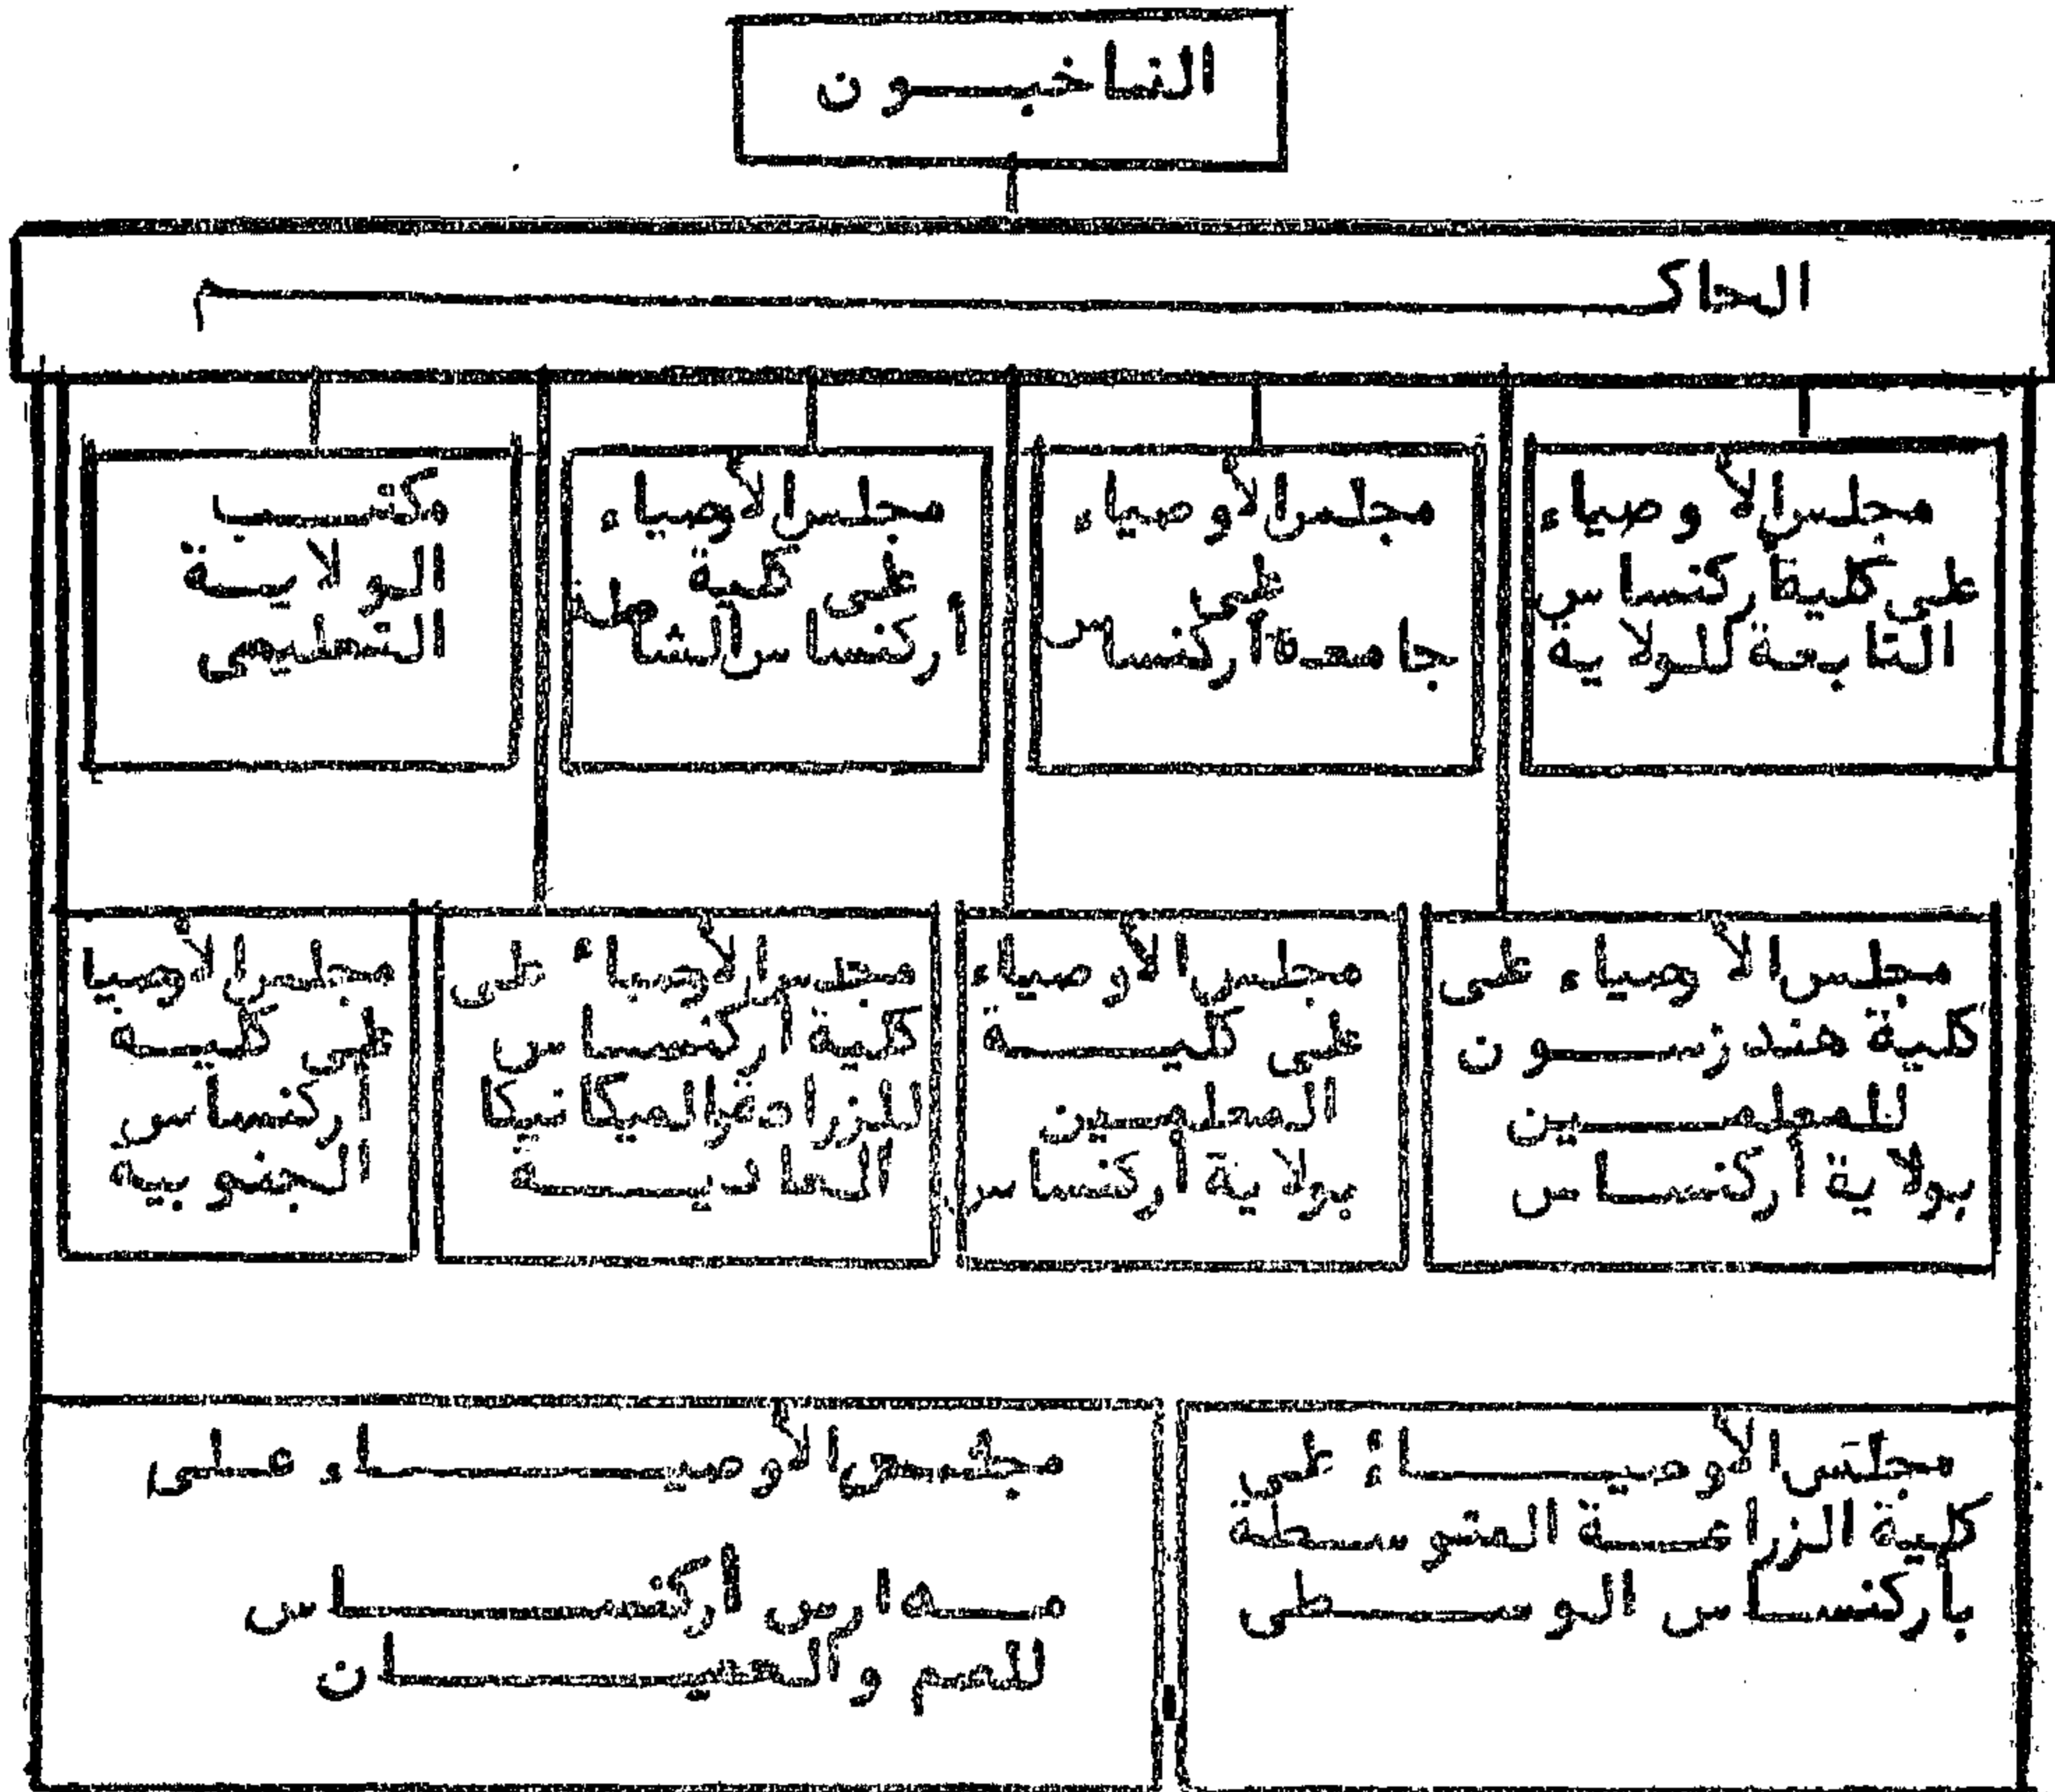 الناخبون
الحاكم
مجلس الأوصياء
على كلية أركنساس
التابعة للولاية
مجلس الأوصياء
على
جامعة أركنساس
مجلس الأوصياء
على كلية
أركنساس الشاملة
مكتب
الولاية
التعليمى
مجلس الأوصياء على
كلية هندرسون
للمعلمين
بولاية أركنساس
مجلس الأوصياء
على كلية
المعلمين
بولاية أركنساس
مجلس الأوصياء على
كلية أركنساس
للزراعة والميكانيكا
العادية
مجلس الأوصيا
على كلية
أركنساس
الجنوبيه
مجلس الأوصياء على
كلية الزراعة المتوسطة
بأركنساس الوسطى
مجلس الأوصياء على
مدارس أركنساس
للصم والعميان